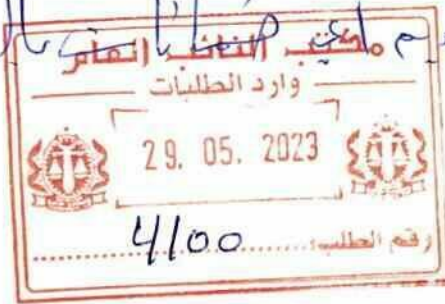 مكتب النائب العام
وارد الطلبات
29. 05. 2023
رقم الطلب: 4100